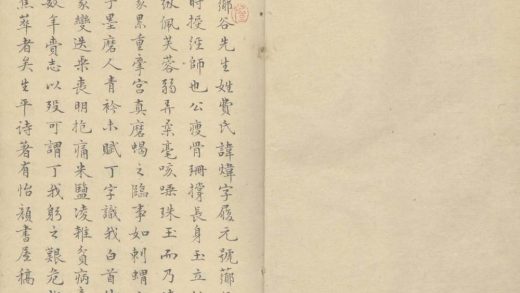 薌谷先生姓費氏諱煒字履元號薌
時授經師也公瘦骨珊撐長身玉立
佩芙蓉弱弄柔毫咳唾珠玉而乃
累重摩宮真磨蝎之臨事如刺蝟
子墨磨人青衿未賦丁字識我白首
家變迭乘喪明抱痛米鹽凌雜貧病
數年賫志以歿可謂丁我躬之艱危
焦萃者矣生平詩著有怡顏書屋稿